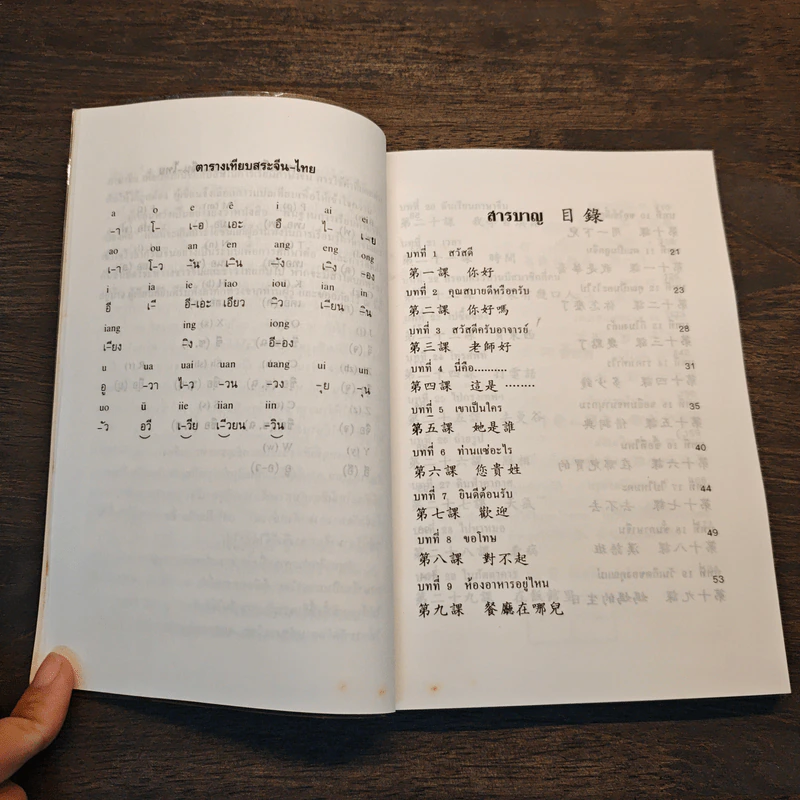 ตารางเทียบสระจีน-ไทย
a o e ê i ai ei
-า โ- เ-อ เ-อะ -ี ไ- เ-ย
ao ou an en ang eng ong
เ-า โ-ว -ัน เ-ิน -ัง เ-ิง -อง
i ia ie iao iou ian in
อี เ-ีย อี-เอะ เอียว -ิว เ-ียน -ิน
iang ing iong
เ-ียง -ิง อี-อง
u ua uai uan uang ui un
อู -ัวา ไ-ว -วน -วง -ุย -ุน
uo ü üe üan ün
-ัว อวี เ-วีย เ-วียน -วิน
สารบาญ 目錄
บทที่ 1 สวัสดี 21
第一課 你好
บทที่ 2 คุณสบายดีหรือครับ 23
第二課 你好嗎
บทที่ 3 สวัสดีครับอาจารย์ 28
第三課 老師好
บทที่ 4 นี่คือ.......... 31
第四課 這是 ........
บทที่ 5 เขาเป็นใคร 35
第五課 她是誰
บทที่ 6 ท่านแซ่อะไร 40
第六課 您貴姓
บทที่ 7 ยินดีต้อนรับ 44
第七課 歡迎
บทที่ 8 ขอโทษ 49
第八課 對不起
บทที่ 9 ห้องอาหารอยู่ไหน 53
第九課 餐廳在哪兒